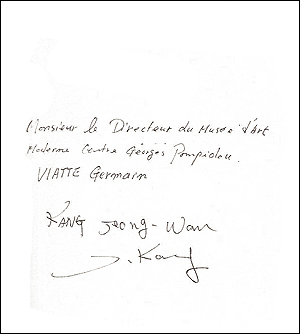 Monsieur le Directeur du Musée d'Art
Moderne Centre Géorges Pompidou.
VIATTE Germain
KANG Jeong-Wan
J. Kang